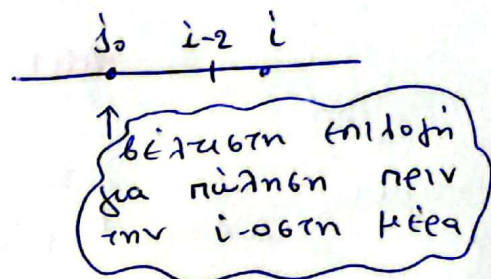 j₀ i-2 i
βέλτιστη επιλογή
για πώληση πριν
την i-οστη μέρα